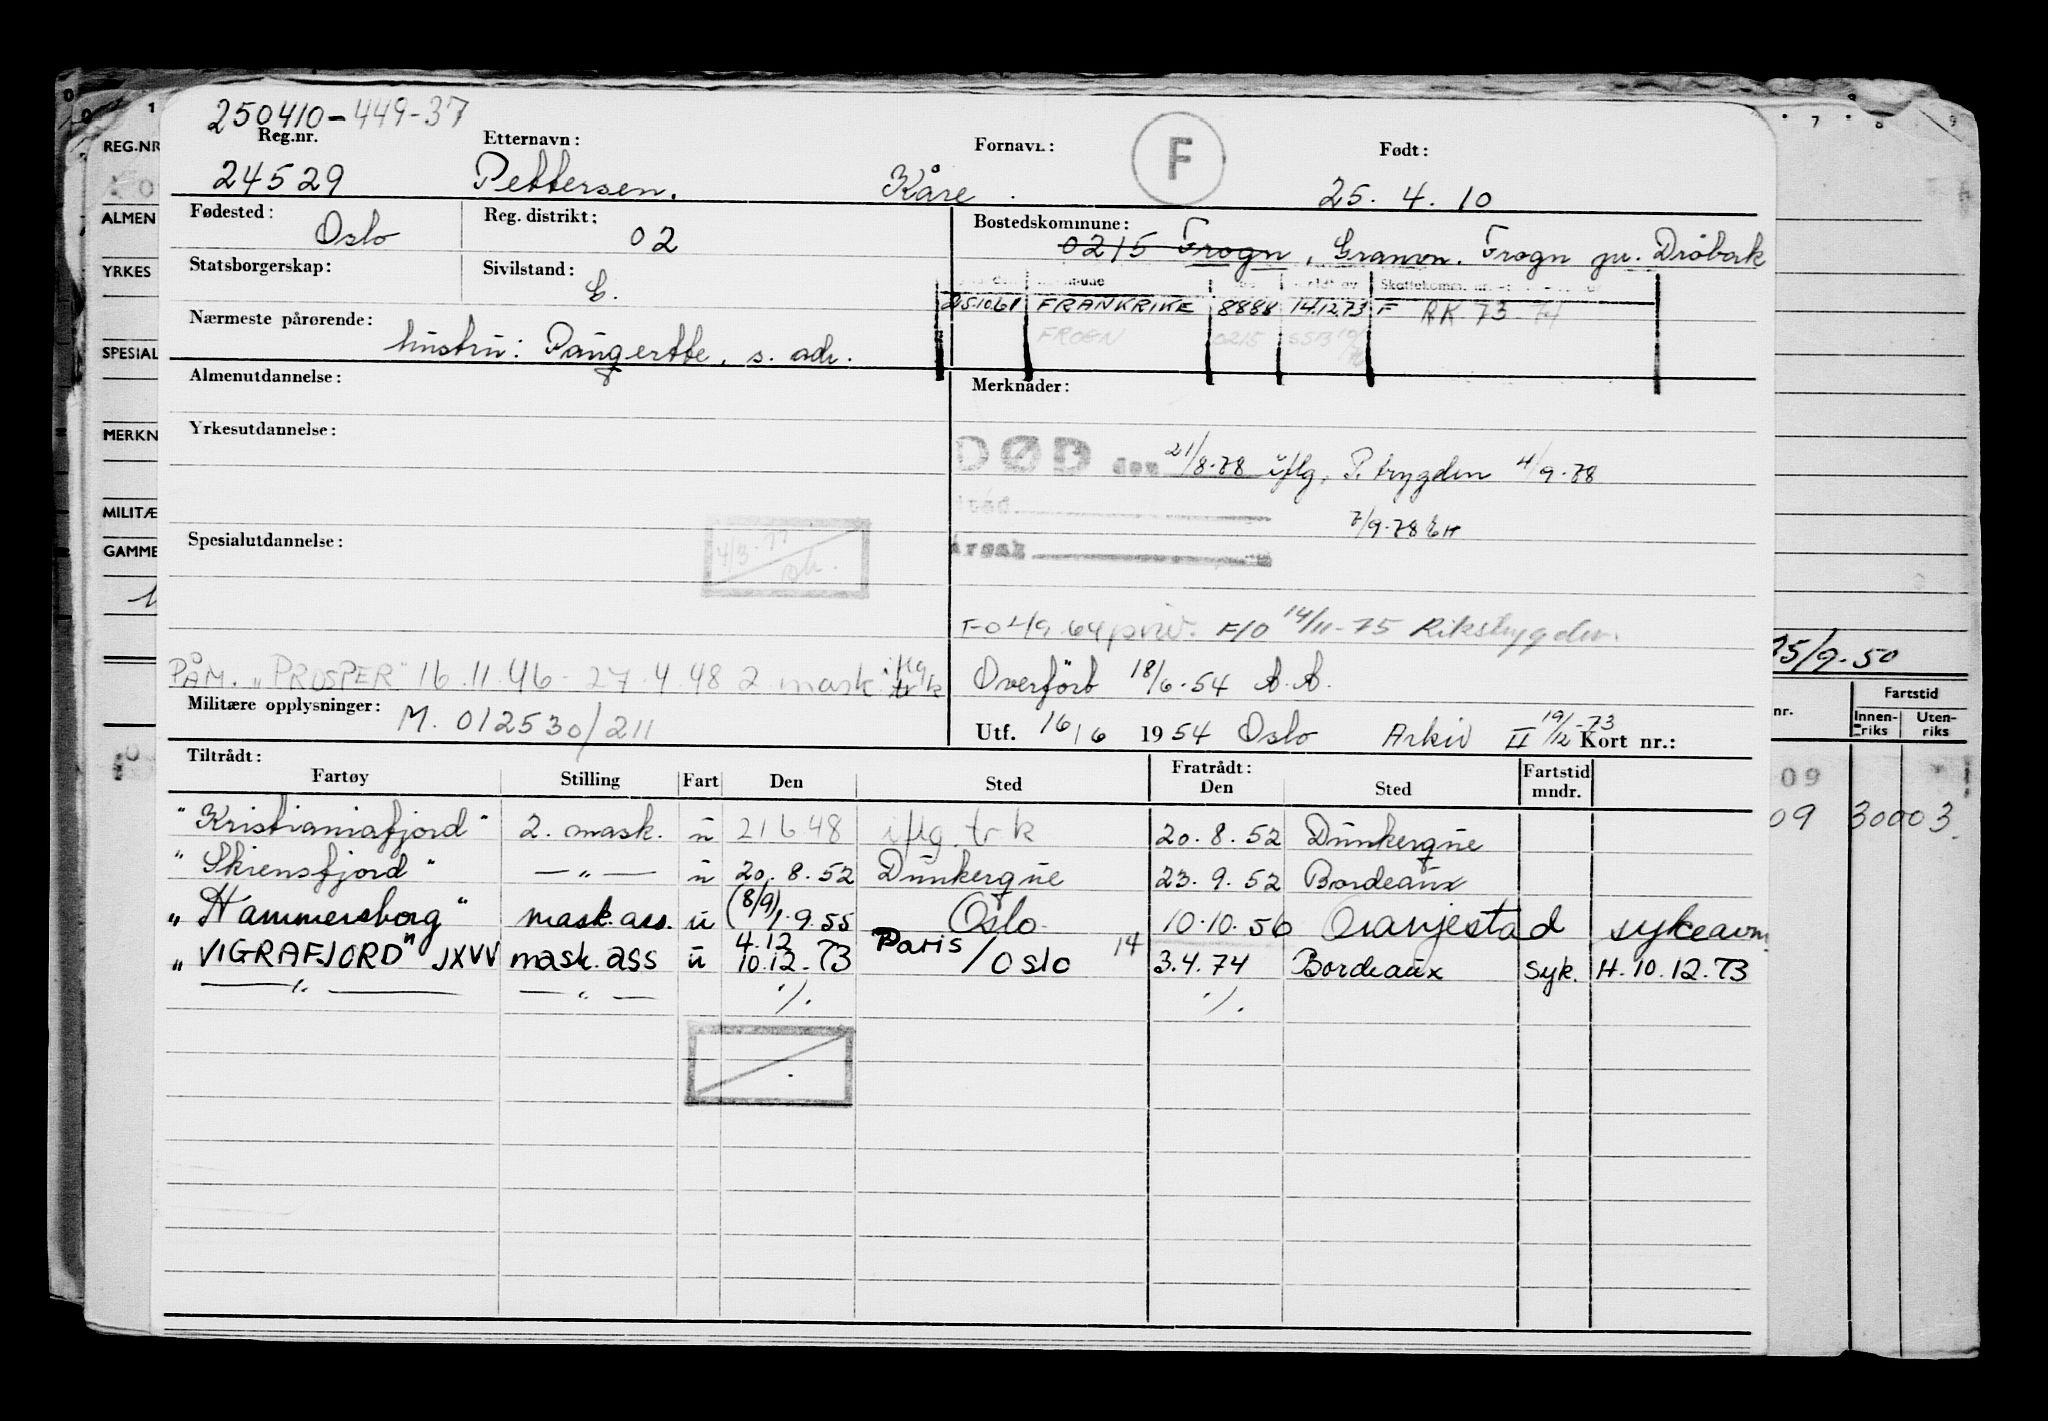 250410-449-37
Reg.nr. Etternavn: Fornavn: F Født:
24529 Pettersen. Kåre 25. 4. 10
Fødested: Oslo Reg. distrikt: 02 Bostedskommune: 0215 Frogn, Granvn. Frogn pr. Drøbak
Statsborgerskap: Sivilstand: G.
25.10.61 FRANKRIKE 8888 14.12.73 F RK 73-74
FROGN 0215
Nærmeste pårørende: hustru: , s. adr.
Almenutdannelse: Merknader:
Yrkesutdannelse:
DØD den 21/8-78 iflg. P. trygden 4/9-78
7/9-78 EH
Spesialutdannelse: 4/3-77 Årsak
64 priv. F/O 14/11-75 Rikstrygden
PÅM. "PROSPER" 16.11.46 - 27.4.48 2 mask iflg tr k
Overført 18/6-54 A.A.
Militære opplysninger: M. 012530/211 Utf. 16/6 1954 Oslo Arkiv II 19/12-73 Kort nr.:
Tiltrådt: Fratrådt: Fartstid
Fartøy Stilling Fart Den Sted Den Sted mndr.
"Kristianiafjord" 2. mask. u 21 6 48 iflg. tr k 20. 8. 52 Dunkerque
"Skiensfjord" — " — u 20. 8. 52 Dunkerque 23. 9. 52 Bordeaux
"Hammersborg" mask.ass. u (8/9) 1.9.55 Oslo 10.10.56 Oranjestad sykeavm
"VIGRAFJORD" JXVV mask. ass u 4.12 10.12.73 Paris / Oslo 14 3.4.74 Bordeaux Syk. H. 10.12.73
— " — — " — ./. ./.
REG.NR
ALMEN
YRKES
SPESIAL
MERKN
MILITÆ
GAMME
7 8 9
15/9-50
Fartstid
nr. Innen-riks Uten-riks
09
09 30003